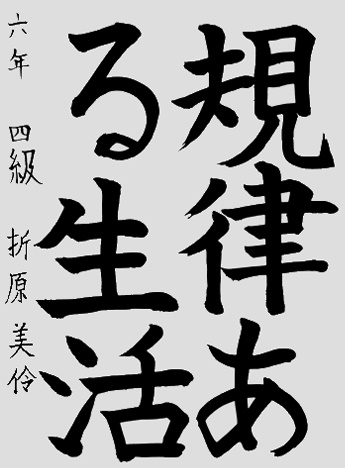 規律あ
る生活
六年 四級 折原美伶